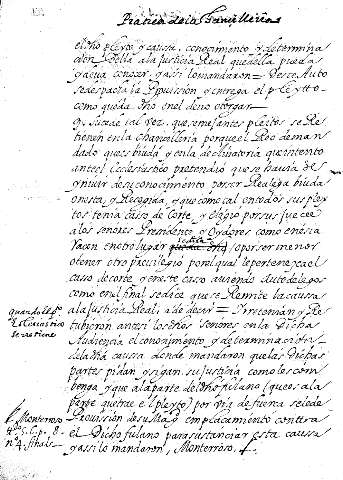 Practica de la Chanzilleria
el dho pleyto y causa, conocimiento y determina
cion della a la Justicia Real que della pueda
y deva conocer, y assi lo mandaron = Deste Auto
se despacha la Provission y entrega el pleytto
como queda dho en el de no otorgar
q. sucede tal vez, que semejantes pleitos se Re
tienen en la Chancilleria porque el Reo deman
dado que es biuda, y en la declinatoria que intento
ante el Ecclesiastico pretendio que se havia de
ynivir de su conocimiento por ser Realega biuda
onesta, y Recogida, y que como tal en todos sus pley
tos tenia caso de Corte, y eligio por sus jueces
a los señores Presidente y Oydores como en esta
Parte en otro lugar se dira o por ser menor
o tener otro previlegio por el qual le pertenezca el
caso de corte, y en este caso aviendo Auto de legos
como en el final se dice que se Remite la causa
a la Justicia Real, a de decir = Retuvieron y Re
tubieron ante si los dhos señores en la Dicha
Audiencia el conocimiento y determinacion
de la dha causa donde mandaron que las Dichas
partes pidan y sigan su Justicia como les com
benga, y que a la parte del dho fulano (que es a la
parte que trae el pleyto) por via de fuerça se le de
Provission de su Magd emplacamiento contra
el Dicho fulano para sustanciar esta causa
y assi lo mandaron, Monterroso,
quando el pto
Ecclesiastico
se retiene
Monterroso